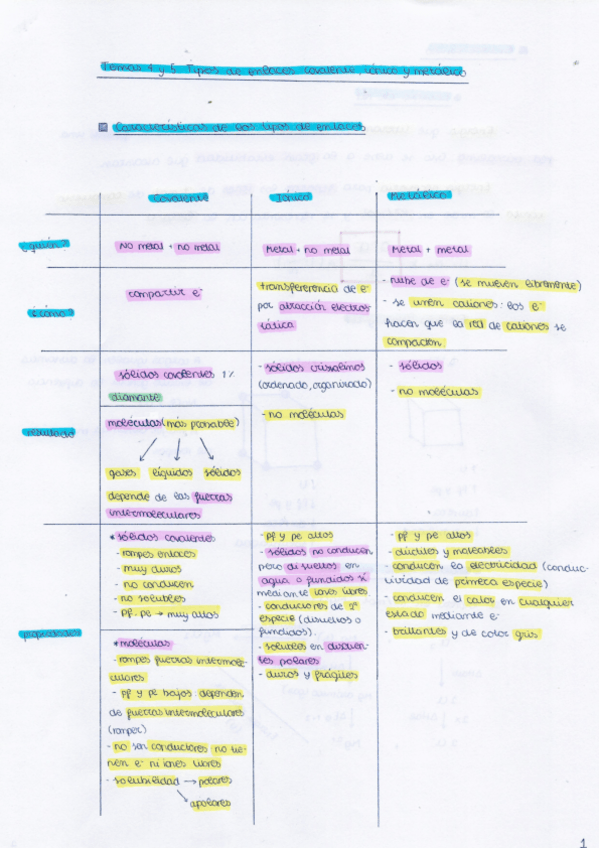 Temas 4 y 5. Tipos de enlaces covalente, iónico y metálico
Características de los tipos de enlaces
Covalente
Iónico
Metálico
¿quién?
No metal + no metal
Metal + no metal
Metal + metal
¿cómo?
compartir e⁻
transferencia de e⁻
por atracción electros
tática
- nube de e⁻ (se mueven libremente)
- se unen cationes: los e⁻
hacen que la red de cationes se
compacten.
resultado
sólidos covalentes 1%
diamante
moléculas (más probable)
gases líquidos sólidos
depende de las fuerzas
intermoleculares
- sólidos cristalinos
(ordenado, organizado)
- no moléculas
- sólidos
- no moléculas
propiedades
* sólidos covalentes
- rompes enlaces
- muy duros
- no conducen
- no solubles
- pf. pe → muy altos
* moléculas
- rompes fuerzas intermole-
culares
- pf y pe bajos: dependen
de fuerzas intermoleculares
(romper)
- no son conductores no tie-
nen e⁻ ni iones libres
- solubilidad → polares
apolares
- pf y pe altos
- sólidos no conducen
pero disueltos en
agua o fundidos sí
mediante iones libres
- conductores de 2ª
especie (disueltos o
fundidos).
- solubles en disolven-
tes polares
- duros y frágiles
- pf y pe altos
- dúctiles y maleables
- conducen la electricidad (conduc-
tividad de primera especie)
- conducen el calor en cualquier
estado mediante e⁻
- brillantes y de color gris
1